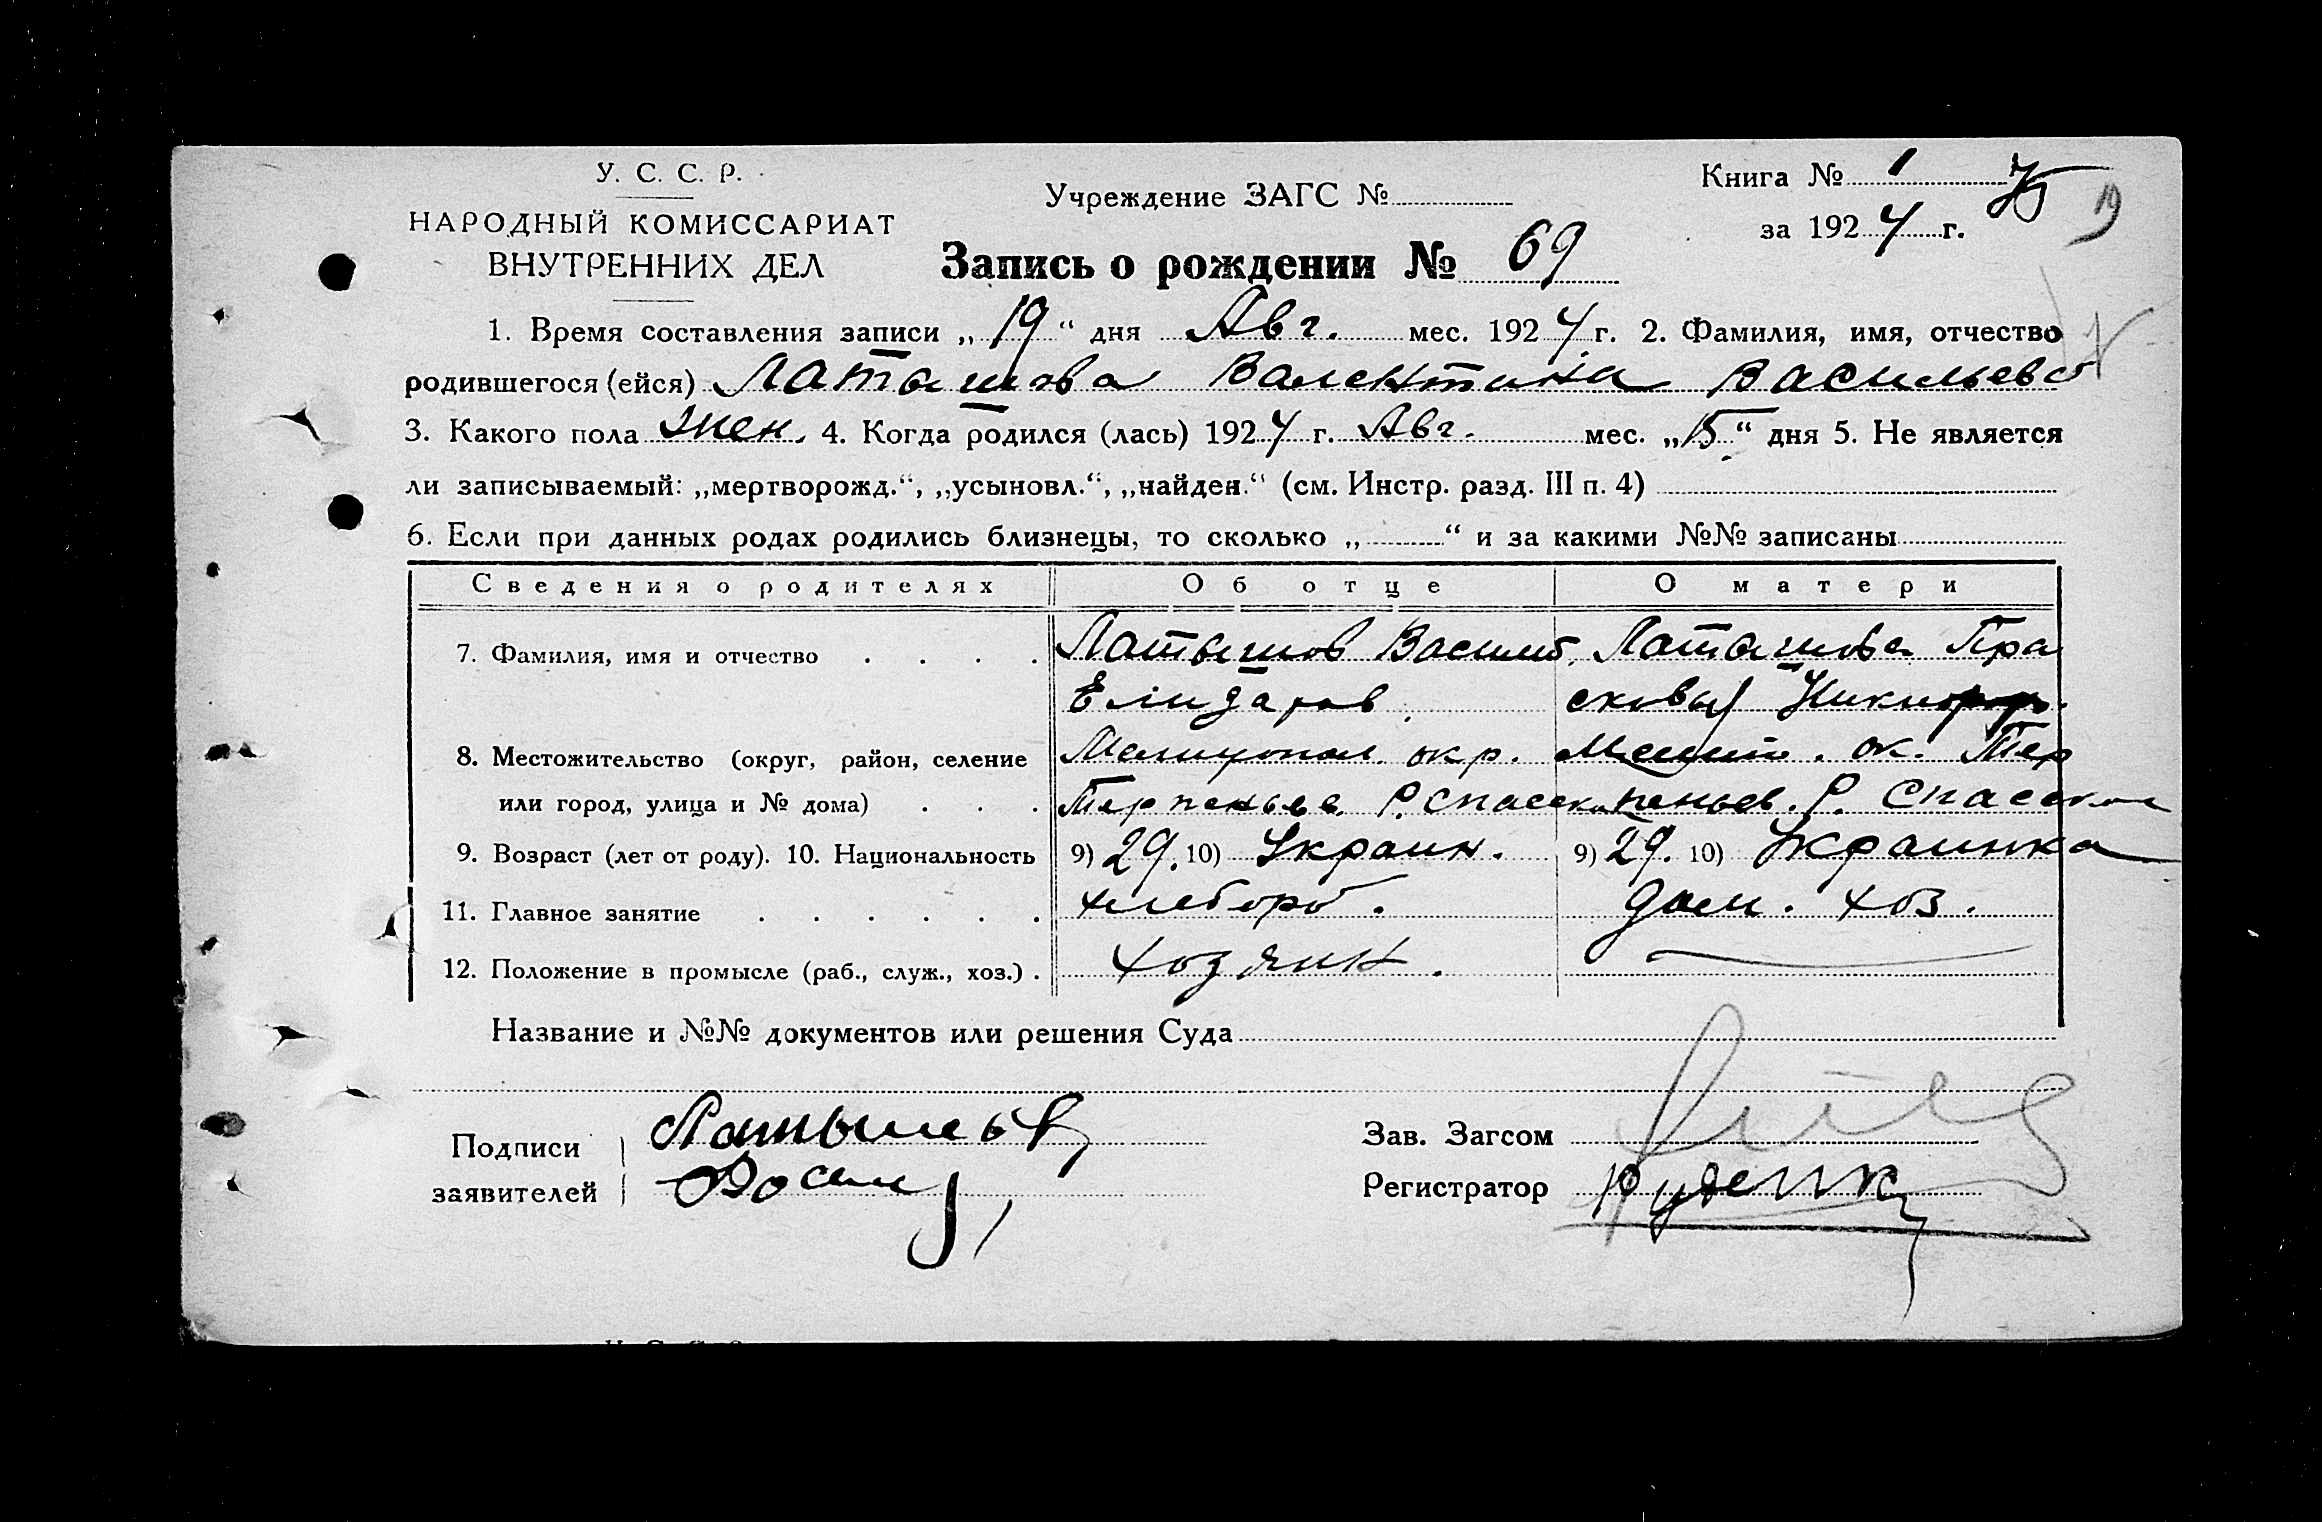 У. С. С. Р.
НАРОДНЫЙ КОМИССАРИАТ
ВНУТРЕННИХ ДЕЛ
Учреждение ЗАГС №
Книга № 1
за 1924 г.
19
Запись о рождении № 69
1. Время составления записи „19“ дня Авг. мес. 1924 г. 2. Фамилия, имя, отчество
родившегося (ейся) Латышова Валентина Васильева
3. Какого пола жен. 4. Когда родился (лась) 1924 г. Авг. мес. „15“ дня 5. Не является
ли записываемый: „мертворожд.“, „усыновл.“, „найден.“ (см. Инстр. разд. III п. 4)
6. Если при данных родах родились близнецы, то сколько „ “ и за какими №№ записаны
Сведения о родителях Об отце О матери
7. Фамилия, имя и отчество Латышов Василь Латышова Пра
Елизаров. сковья Никифор.
8. Местожительство (округ, район, селение Мелитопол. окр. Мелит. ок. Тер
или город, улица и № дома) Терпеньев. Р. Спасско пеньев. Р. Спасское
9. Возраст (лет от роду). 10. Национальность 9) 29. 10) Украин. 9) 29. 10) Украинка
11. Главное занятие хлебороб. дом. хоз.
12. Положение в промысле (раб., служ., хоз.) хозяин.
Название и №№ документов или решения Суда
Подписи Латышов
заявителей
Зав. Загсом
Регистратор Руденко